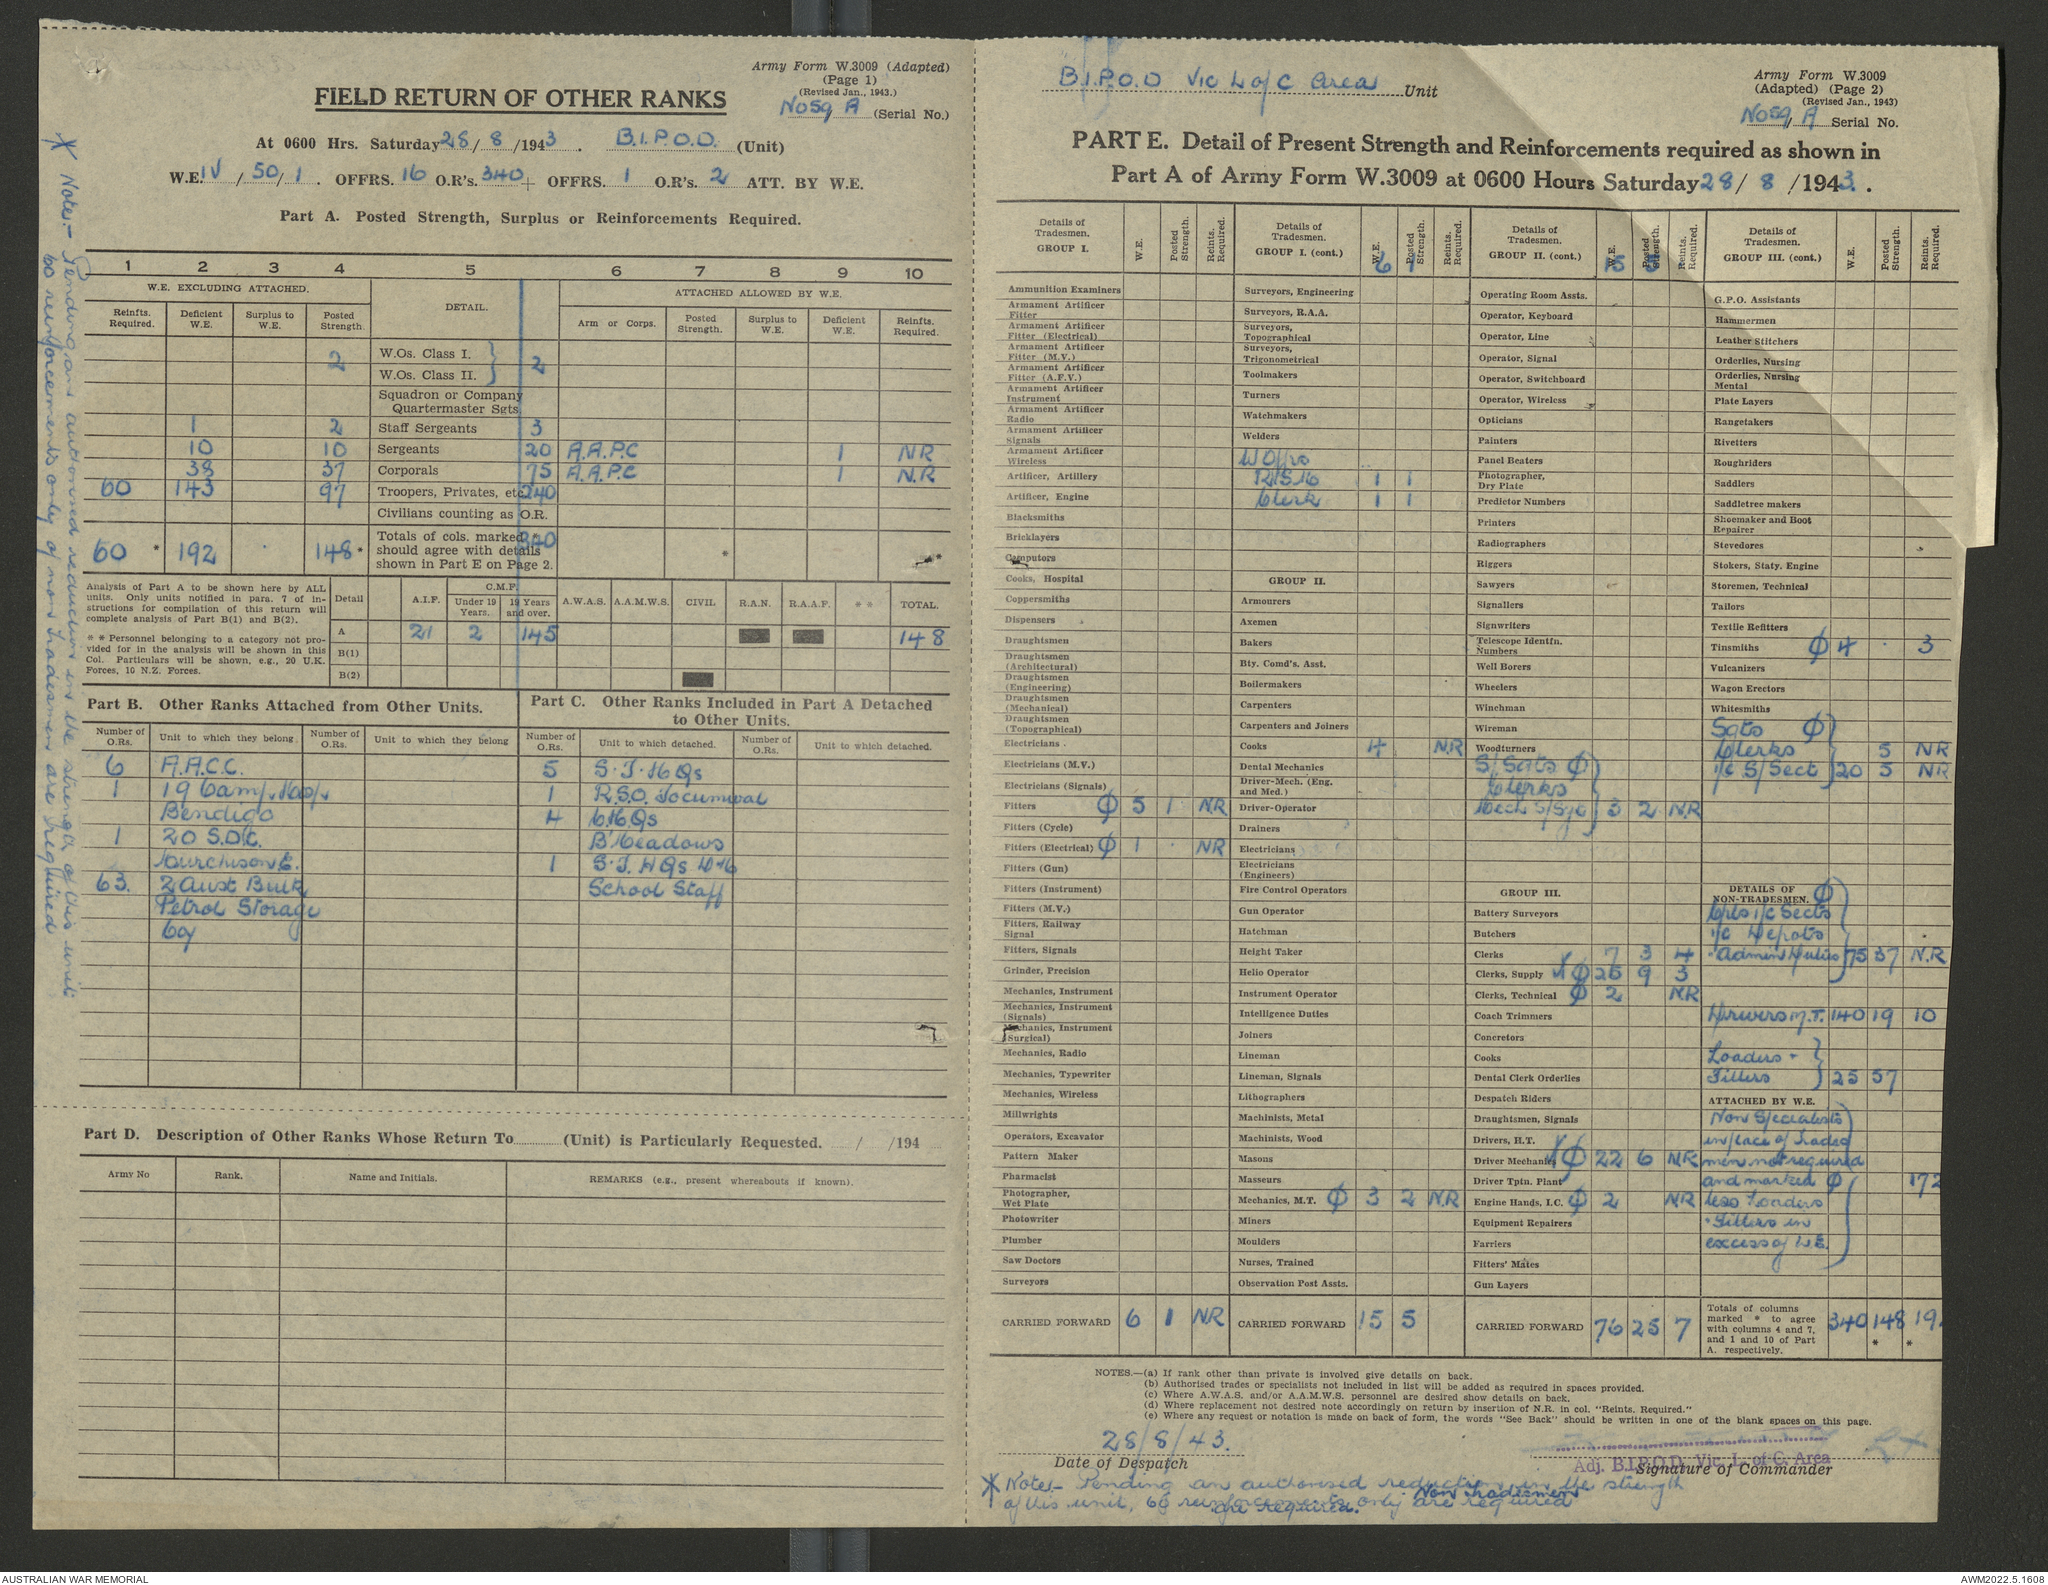 Army Form W.3009 (Adapted)
(Page 1)
(Revised Jan., 1943.)
FIELD RETURN OF OTHER RANKS
No 59/A (Serial No.)
At 0600 Hrs. Saturday 28/ 8 /1943. B.I.P.O.D. (Unit)
W.E. IV / 50 / 1. OFFRS. 16 O.R's. 340 + OFFRS. 1 O.R's. 2 ATT. BY W.E.
Part A. Posted Strength, Surplus or Reinforcements Required.
1 2 3 4 5 6 7 8 9 10
W.E. EXCLUDING ATTACHED. DETAIL. ATTACHED ALLOWED BY W.E.
Reinfts. Required. Deficient W.E. Surplus to W.E. Posted Strength. Arm or Corps. Posted Strength. Surplus to W.E. Deficient W.E. Reinfts. Required.
2 W.Os. Class I. } 2
W.Os. Class II.
Squadron or Company
Quartermaster Sgts.
1 2 Staff Sergeants 3
10 10 Sergeants 20 A.A.P.C 1 NR
38 37 Corporals 75 A.A.P.C 1 N.R
60 143 97 Troopers, Privates, etc. 240
Civilians counting as O.R.
60 * 192 148 * Totals of cols. marked should agree with details shown in Part E on Page 2. 340 * *
Analysis of Part A to be shown here by ALL units. Only units notified in para. 7 of instructions for compilation of this return will complete analysis of Part B(1) and B(2).
* * Personnel belonging to a category not provided for in the analysis will be shown in this Col. Particulars will be shown, e.g., 20 U.K. Forces, 10 N.Z. Forces.
Detail A.I.F. C.M.F. Under 19 Years. 19 Years and over. A.W.A.S. A.A.M.W.S. CIVIL R.A.N. R.A.A.F. * * TOTAL.
A 21 2 145 148
B(1)
B(2)
Part B. Other Ranks Attached from Other Units.
Part C. Other Ranks Included in Part A Detached to Other Units.
Number of O.Rs. Unit to which they belong. Number of O.Rs. Unit to which they belong Number of O.Rs. Unit to which detached. Number of O.Rs. Unit to which detached.
6 A.A.C.C. 5 S.T. HQs
1 19 Camp Hosp. 1 R.S.O. Tocumwal
Bendigo 4 C.HQs
1 20 S.D.C. B'Meadows
Murchison E. 1 S.T. HQs
63. 2 Aust Bulk School Staff
Petrol Storage
Coy
Part D. Description of Other Ranks Whose Return To (Unit) is Particularly Requested. / /194
Army No Rank. Name and Initials. REMARKS (e.g., present whereabouts if known).
* Note:- Pending an authorised reduction in the strength of this unit
60 reinforcements only of non tradesmen are required
B.I.P.O.D Vic L of C Area Unit
Army Form W.3009
(Adapted) (Page 2)
(Revised Jan., 1943)
No 59/A Serial No.
PART E. Detail of Present Strength and Reinforcements required as shown in
Part A of Army Form W.3009 at 0600 Hours Saturday 28/ 8 /1943.
Details of Tradesmen. GROUP I. W.E. Posted Strength. Reints. Required.
Ammunition Examiners
Armament Artificer Fitter
Armament Artificer Fitter (Electrical)
Armament Artificer Fitter (M.V.)
Armament Artificer Fitter (A.F.V.)
Armament Artificer Instrument
Armament Artificer Radio
Armament Artificer Signals
Armament Artificer Wireless
Artificer, Artillery
Artificer, Engine
Blacksmiths
Bricklayers
Computors
Cooks, Hospital
Coppersmiths
Dispensers
Draughtsmen
Draughtsmen (Architectural)
Draughtsmen (Engineering)
Draughtsmen (Mechanical)
Draughtsmen (Topographical)
Electricians
Electricians (M.V.)
Electricians (Signals)
Fitters φ 5 1 NR
Fitters (Cycle)
Fitters (Electrical) φ 1 . NR
Fitters (Gun)
Fitters (Instrument)
Fitters (M.V.)
Fitters, Railway Signal
Fitters, Signals
Grinder, Precision
Mechanics, Instrument
Mechanics, Instrument (Signals)
Mechanics, Instrument (Surgical)
Mechanics, Radio
Mechanics, Typewriter
Mechanics, Wireless
Millwrights
Operators, Excavator
Pattern Maker
Pharmacist
Photographer, Wet Plate
Photowriter
Plumber
Saw Doctors
Surveyors
CARRIED FORWARD 6 1 NR
Details of Tradesmen. GROUP I. (cont.) W.E. Posted Strength. Reints. Required.
6 1
Surveyors, Engineering
Surveyors, R.A.A.
Surveyors, Topographical
Surveyors, Trigonometrical
Toolmakers
Turners
Watchmakers
Welders
W Offrs
1 1
Clerk 1 1
GROUP II.
Armourers
Axemen
Bakers
Bty. Comd's. Asst.
Boilermakers
Carpenters
Carpenters and Joiners
Cooks 4 N.R
Dental Mechanics
Driver-Mech. (Eng. and Med.)
Driver-Operator
Drainers
Electricians
Electricians (Engineers)
Fire Control Operators
Gun Operator
Hatchman
Height Taker
Helio Operator
Instrument Operator
Intelligence Duties
Joiners
Lineman
Lineman, Signals
Lithographers
Machinists, Metal
Machinists, Wood
Masons
Masseurs
Mechanics, M.T. φ 3 2 N.R
Miners
Moulders
Nurses, Trained
Observation Post Assts.
CARRIED FORWARD 15 5
Details of Tradesmen. GROUP II. (cont.) W.E. Posted Strength. Reints. Required.
15 5
Operating Room Assts.
Operator, Keyboard
Operator, Line
Operator, Signal
Operator, Switchboard
Operator, Wireless
Opticians
Painters
Panel Beaters
Photographer, Dry Plate
Predictor Numbers
Printers
Radiographers
Riggers
Sawyers
Signallers
Signwriters
Telescope Identfn. Numbers
Well Borers
Wheelers
Winchman
Wireman
Woodturners
S/Sgts φ
Clerks
Mech S/Sgt 3 2 N.R
GROUP III.
Battery Surveyors
Butchers
Clerks 7 3 4
Clerks, Supply φ 26 9 3
Clerks, Technical φ 2 NR
Coach Trimmers
Concretors
Cooks
Dental Clerk Orderlies
Despatch Riders
Draughtsmen, Signals
Drivers, H.T.
Driver Mechanics φ 22 6 N.R
Driver Tptn. Plant
Engine Hands, I.C. φ 2 NR
Equipment Repairers
Farriers
Fitters' Mates
Gun Layers
CARRIED FORWARD 76 25 7
Details of Tradesmen. GROUP III. (cont.) W.E. Posted Strength. Reints. Required.
G.P.O. Assistants
Hammermen
Leather Stitchers
Orderlies, Nursing
Orderlies, Nursing Mental
Plate Layers
Rangetakers
Rivetters
Roughriders
Saddlers
Saddletree makers
Shoemaker and Boot Repairer
Stevedores
Stokers, Staty. Engine
Storemen, Technical
Tailors
Textile Refitters
Tinsmiths φ 4 . 3
Vulcanizers
Wagon Erectors
Whitesmiths
Sgts φ
Clerks 5 NR
i/c S/Sect 20 5 NR
DETAILS OF NON-TRADESMEN. φ
Cpls i/c Sects
i/c Depots
Admin Duties 75 37 N.R
Drivers M.T. 140 19 10
Loaders +
Fillers 25 57
ATTACHED BY W.E.
Non Specialists
in place of trades
men not required
and marked φ 172
less Loaders
Fillers in
excess of W.E.
Totals of columns marked * to agree with columns 4 and 7, and 1 and 10 of Part A. respectively. 340 148 * 19 *
NOTES.—(a) If rank other than private is involved give details on back.
(b) Authorised trades or specialists not included in list will be added as required in spaces provided.
(c) Where A.W.A.S. and/or A.A.M.W.S. personnel are desired show details on back.
(d) Where replacement not desired note accordingly on return by insertion of N.R. in col. "Reints. Required."
(e) Where any request or notation is made on back of form, the words "See Back" should be written in one of the blank spaces on this page.
28/8/43.
Date of Despatch
Adj. B.I.P.O.D. Vic. L. of C. Area
Signature of Commander
* Note:- Pending an authorised reduction in the strength
of this unit, 60 reinforcements only Non tradesmen are required
are required.
AUSTRALIAN WAR MEMORIAL
AWM2022.5.1608